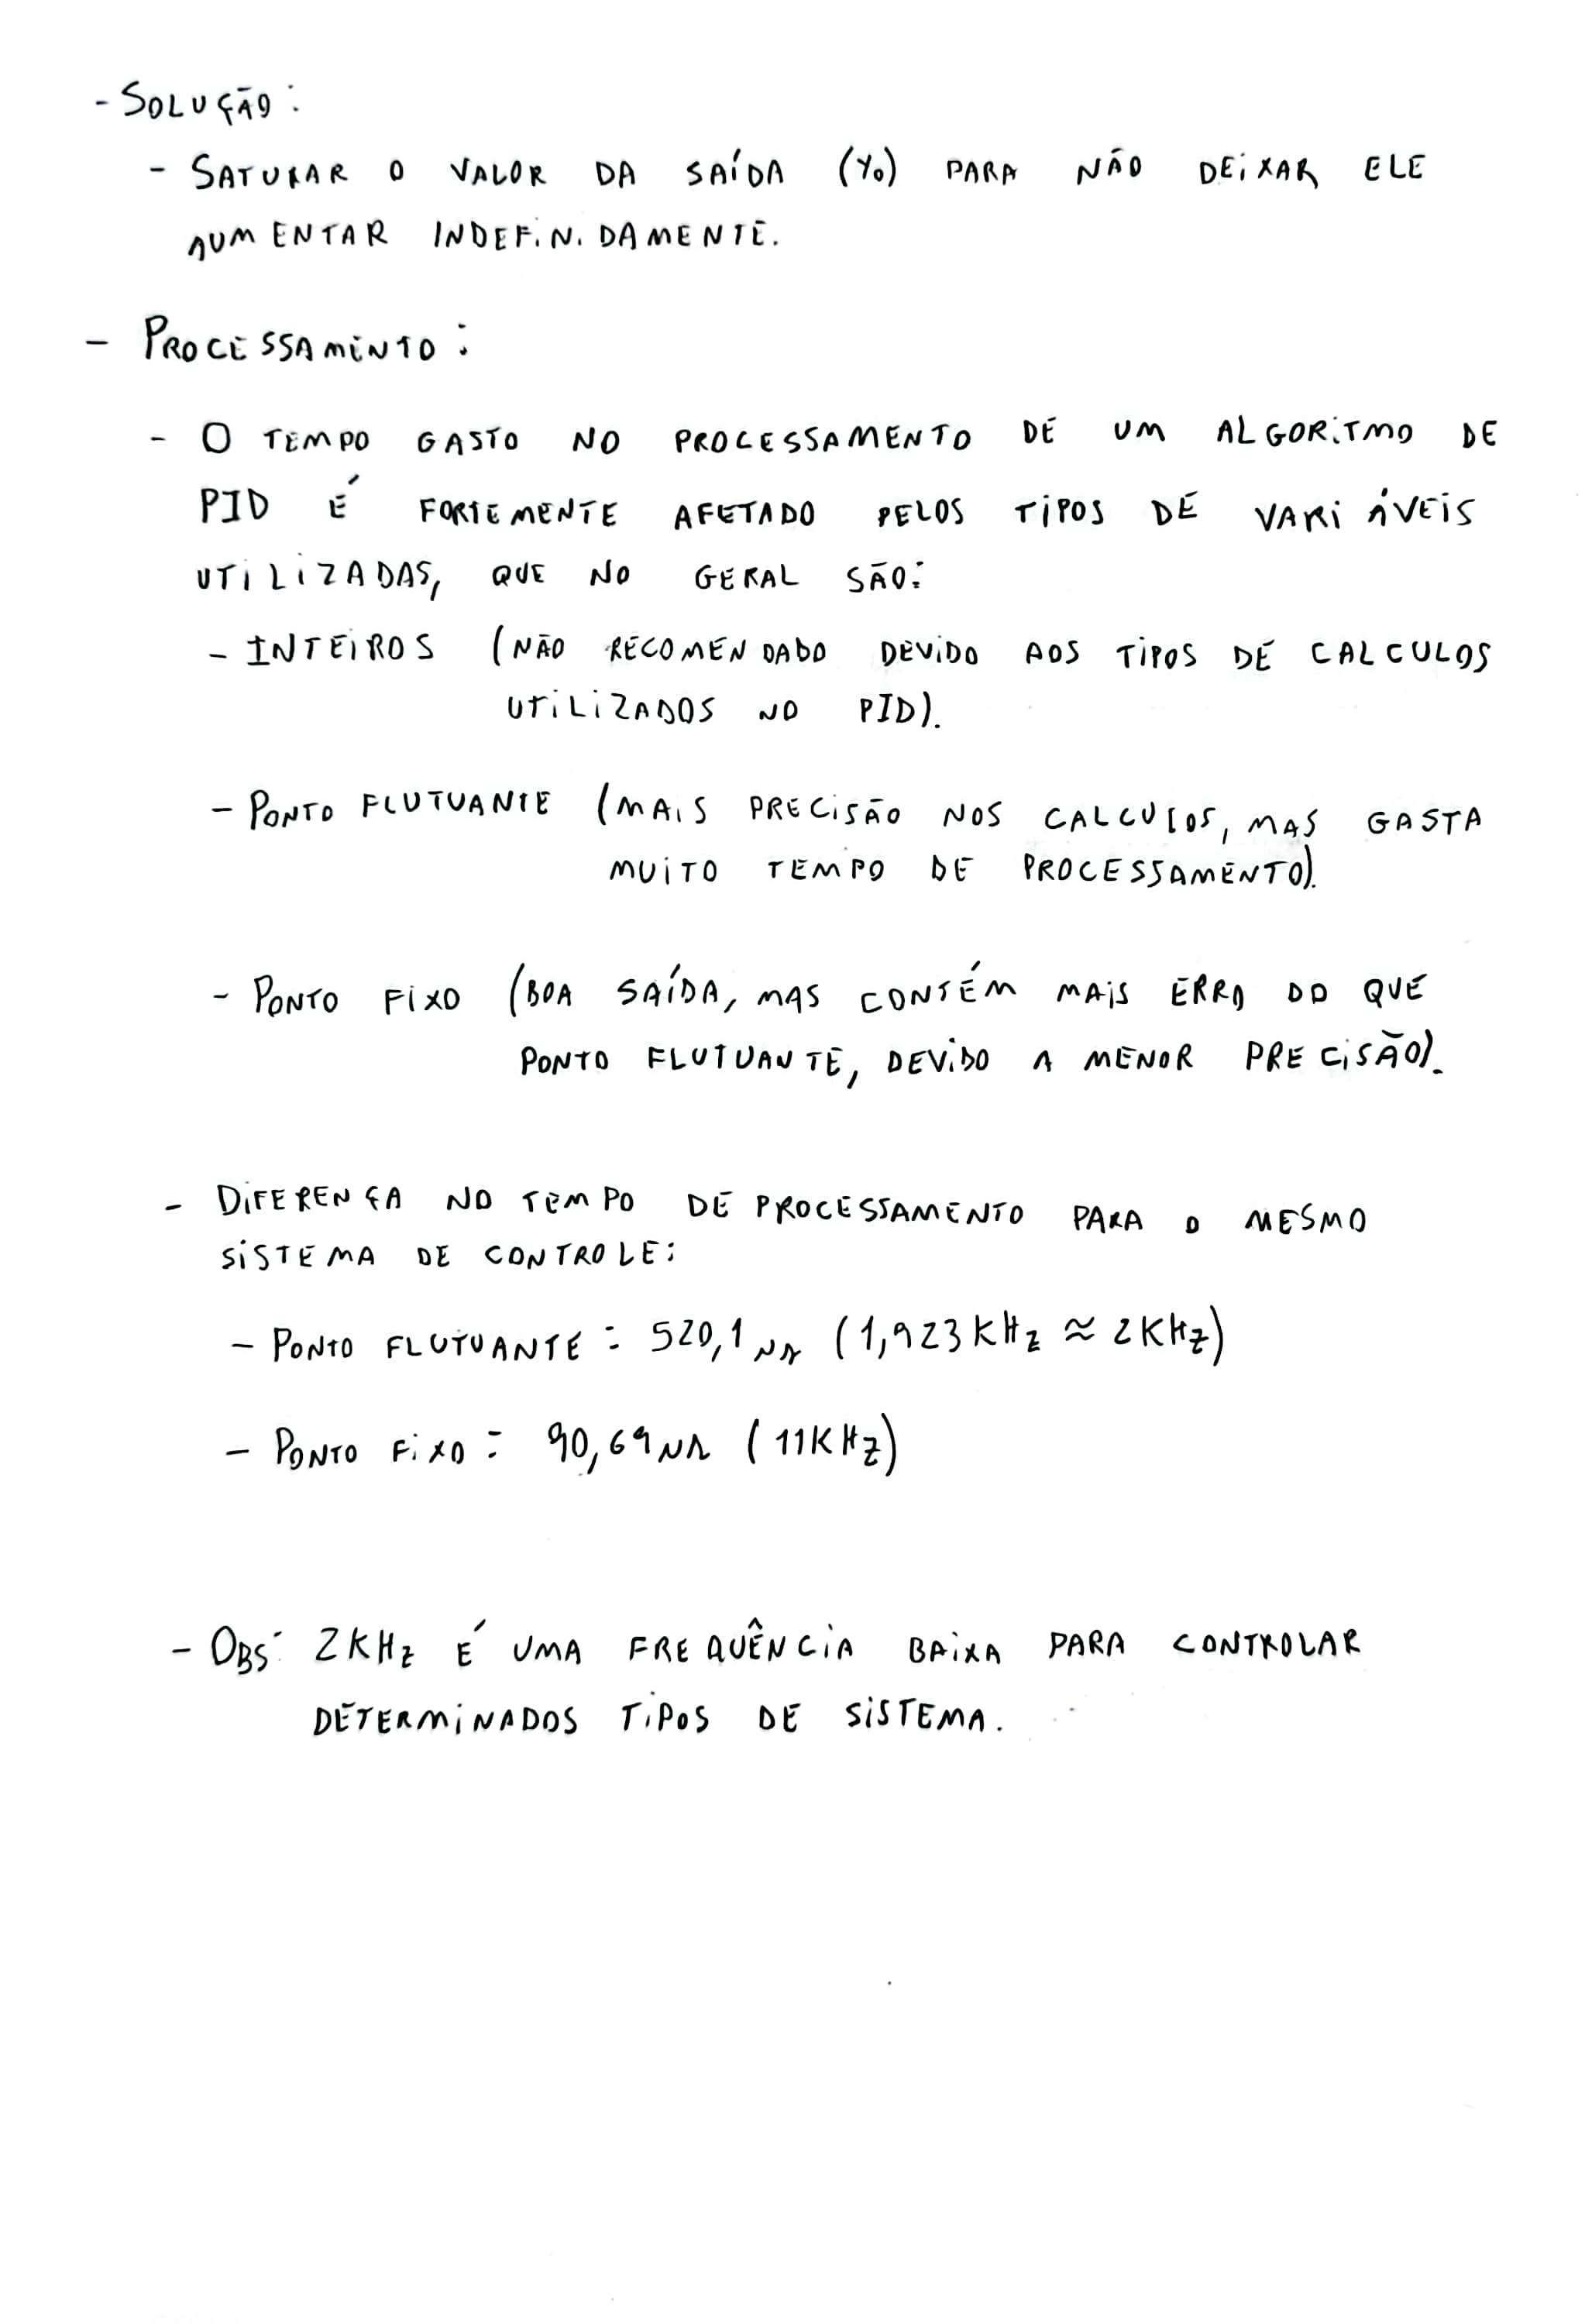 - SOLUÇÃO:
- SATURAR O VALOR DA SAÍDA (Y0) PARA NÃO DEIXAR ELE
AUMENTAR INDEFINIDAMENTE.
- PROCESSAMENTO:
- O TEMPO GASTO NO PROCESSAMENTO DE UM ALGORITMO DE
PID É FORTEMENTE AFETADO PELOS TIPOS DE VARIÁVEIS
UTILIZADAS, QUE NO GERAL SÃO:
- INTEIROS (NÃO RECOMENDADO DEVIDO AOS TIPOS DE CALCULOS
UTILIZADOS NO PID).
- PONTO FLUTUANTE (MAIS PRECISÃO NOS CALCULOS, MAS GASTA
MUITO TEMPO DE PROCESSAMENTO).
- PONTO FIXO (BOA SAÍDA, MAS CONTÉM MAIS ERRO DO QUE
PONTO FLUTUANTE, DEVIDO A MENOR PRECISÃO).
- DIFERENÇA NO TEMPO DE PROCESSAMENTO PARA O MESMO
SISTEMA DE CONTROLE:
- PONTO FLUTUANTE: 520,1 µs (1,923KHz ≈ 2KHz)
- PONTO FIXO: 90,69 µs (11KHz)
- OBS: 2KHz É UMA FREQUÊNCIA BAIXA PARA CONTROLAR
DETERMINADOS TIPOS DE SISTEMA.